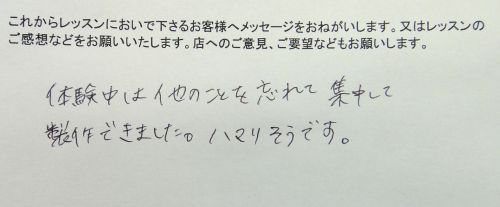 これからレッスンにおいで下さるお客様へメッセージをおねがいします。又はレッスンの
ご感想などをお願いいたします。店へのご意見、ご要望などもお願いします。
体験中は他のことを忘れて集中して
製作できました。ハマりそうです。